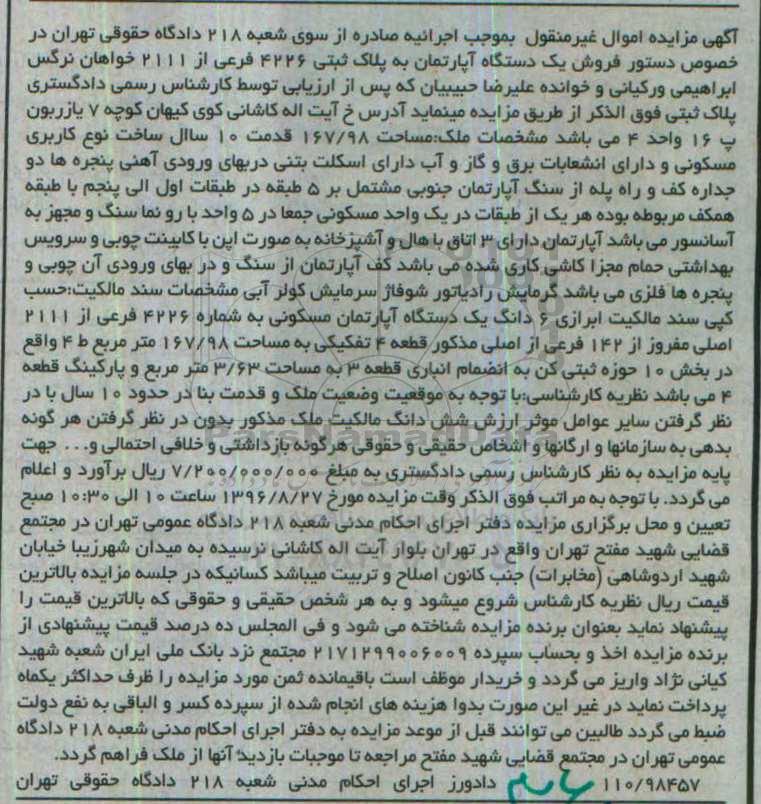 آگهی مزایده اموال غیرمنقول بموجب اجرائیه صادره از سوی شعبه ۲۱۸ دادگاه حقوقی تهران در
خصوص دستور فروش یک دستگاه آپارتمان به پلاک ثبتی ۴۲۲۶ فرعی از ۲۱۱۱ خواهان نرگس
ابراهیمی ورکیانی و خوانده علیرضا حبیبیان که پس از ارزیابی توسط کارشناس رسمی دادگستری
پلاک ثبتی فوق الذکر از طریق مزایده مینماید آدرس خ آیت اله کاشانی کوی کیهان کوچه ۷ یازربون
پ ۱۶ واحد ۴ می باشد مشخصات ملک:مساحت ۱۶۷/۹۸ قدمت ۱۰ ساال ساخت نوع کاربری
مسکونی و دارای انشعابات برق و گاز و آب دارای اسکلت بتنی دربهای ورودی آهنی پنجره ها دو
جداره کف و راه پله از سنگ آپارتمان جنوبی مشتمل بر ۵ طبقه در طبقات اول الی پنجم با طبقه
همکف مربوطه بوده هر یک از طبقات در یک واحد مسکونی جمعا در ۵ واحد با رو نما سنگ و مجهز به
آسانسور می باشد آپارتمان دارای ۳ اتاق با هال و آشپزخانه به صورت اپن با کابینت چوبی و سرویس
بهداشتی حمام مجزا کاشی کاری شده می باشد کف آپارتمان از سنگ و در بهای ورودی آن چوبی و
پنجره ها فلزی می باشد گرمایش رادیاتور شوفاژ سرمایش کولر آبی مشخصات سند مالکیت:حسب
کپی سند مالکیت ابرازی ۶ دانگ یک دستگاه آپارتمان مسکونی به شماره ۴۲۲۶ فرعی از ۲۱۱۱
اصلی مفروز از ۱۴۲ فرعی از اصلی مذکور قطعه ۴ تفکیکی به مساحت ۱۶۷/۹۸ متر مربع ط ۴ واقع
در بخش ۱۰ حوزه ثبتی کن به انضمام انباری قطعه ۳ به مساحت ۳/۶۳ متر مربع و پارکینگ قطعه
۴ می باشد نظریه کارشناسی:با توجه به موقعیت وضعیت ملک و قدمت بنا در حدود ۱۰ سال با در
نظر گرفتن سایر عوامل موثر ارزش شش دانگ مالکیت ملک مذکور بدون در نظر گرفتن هر گونه
بدهی به سازمانها و ارگانها و اشخاص حقیقی و حقوقی هرگونه بازداشتی و خلافی احتمالی و... جهت
پایه مزایده به نظر کارشناس رسمی دادگستری به مبلغ ۷/۲۰۰/۰۰۰/۰۰۰ ریال برآورد و اعلام
می گردد. با توجه به مراتب فوق الذکر وقت مزایده مورخ ۱۳۹۶/۸/۲۷ ساعت ۱۰ الی ۱۰:۳۰ صبح
تعیین و محل برگزاری مزایده دفتر اجرای احکام مدنی شعبه ۲۱۸ دادگاه عمومی تهران در مجتمع
قضایی شهید مفتح تهران واقع در تهران بلوار آیت اله کاشانی نرسیده به میدان شهرزیبا خیابان
شهید اردوشاهی (مخابرات) جنب کانون اصلاح و تربیت میباشد کسانیکه در جلسه مزایده بالاترین
قیمت ریال نظریه کارشناس شروع میشود و به هر شخص حقیقی و حقوقی که بالاترین قیمت را
پیشنهاد نماید بعنوان برنده مزایده شناخته می شود و فی المجلس ده درصد قیمت پیشنهادی از
برنده مزایده اخذ و بحساب سپرده ۲۱۷۱۲۹۹۰۰۶۰۰۹ مجتمع نزد بانک ملی ایران شعبه شهید
کیانی نژاد واریز می گردد و خریدار موظف است باقیمانده ثمن مورد مزایده را ظرف حداکثر یکماه
پرداخت نماید در غیر این صورت بدوا هزینه های انجام شده از سپرده کسر و الباقی به نفع دولت
ضبط می گردد طالبین می توانند قبل از موعد مزایده به دفتر اجرای احکام مدنی شعبه ۲۱۸ دادگاه
عمومی تهران در مجتمع قضایی شهید مفتح مراجعه تا موجبات بازدید آنها از ملک فراهم گردد.
۱۱۰/۹۸۴۵۷ دادورز اجرای احکام مدنی شعبه ۲۱۸ دادگاه حقوقی تهران